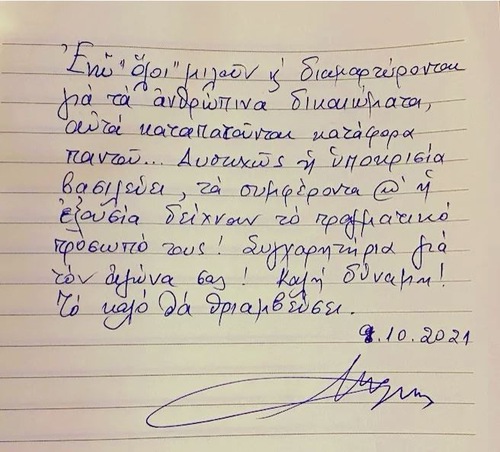 Ἐνῶ "ὅλοι" μιλοῦν κ' διαμαρτύρονται
γιά τά ἀνθρώπινα δικαιώματα,
αὐτά καταπατοῦνται κατάφορα
παντοῦ... Δυστυχῶς ἡ ὑποκρισία
βασιλεύει, τά συμφέροντα ἡ
ἐξουσία δείχνουν τό πραγματικό
πρόσωπό τους! Συγχαρητήρια γιά
τόν ἀγώνα σας! Καλή δύναμη!
Τό καλό θά θριαμβεύσει.
9.10.2021